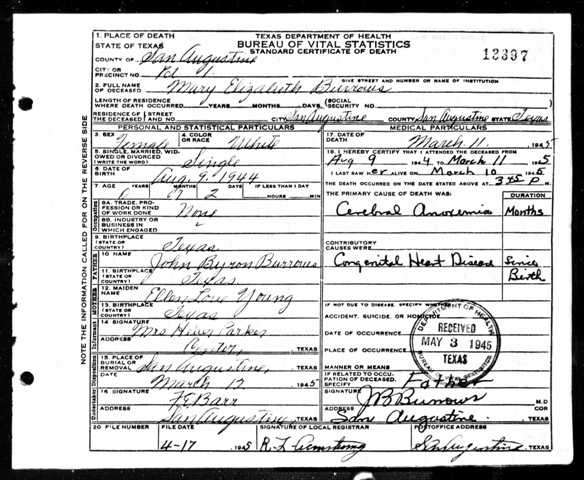 1. PLACE OF DEATH
STATE OF TEXAS
COUNTY OF San Augustine
CITY OR PRECINCT NO. Pct 1
TEXAS DEPARTMENT OF HEALTH
BUREAU OF VITAL STATISTICS
STANDARD CERTIFICATE OF DEATH
12397
GIVE STREET AND NUMBER OR NAME OF INSTITUTION
2. FULL NAME OF DECEASED Mary Elizabeth Burrows
LENGTH OF RESIDENCE WHERE DEATH OCCURRED YEARS MONTHS DAYS (SOCIAL SECURITY NO.
RESIDENCE OF THE DECEASED STREET AND NO. CITY San Augustine COUNTY San Augustine STATE Texas
PERSONAL AND STATISTICAL PARTICULARS
3. SEX Female
4. COLOR OR RACE White
5. SINGLE, MARRIED, WIDOWED OR DIVORCED (WRITE THE WORD) Single
6. DATE OF BIRTH Aug. 9, 1944
7. AGE 7 2 IF LESS THAN 1 DAY
HOURS MIN
8A. TRADE, PROFESSION OR KIND OF WORK DONE None
8B. INDUSTRY OR BUSINESS IN WHICH ENGAGED
9. BIRTHPLACE (STATE OR COUNTRY) Texas
FATHER
10. NAME John Byron Burrows
11. BIRTHPLACE (STATE OR COUNTRY) Texas
MOTHER
12. MAIDEN NAME Young
13. BIRTHPLACE (STATE OR COUNTRY) Texas
14. SIGNATURE Mrs Parker
ADDRESS Center, TEXAS
15. PLACE OF BURIAL OR REMOVAL San Augustine, TEXAS
DATE March 12 1945
16. SIGNATURE Barr
ADDRESS San Augustine TEXAS
MEDICAL PARTICULARS
17. DATE OF DEATH March 11. 1945
18. I HEREBY CERTIFY THAT I ATTENDED THE DECEASED FROM
Aug 9 1944 TO March 11 1945
I LAST SAW her ALIVE ON March 10 1945
THE DEATH OCCURRED ON THE DATE STATED ABOVE AT 3:45 P M.
THE PRIMARY CAUSE OF DEATH WAS: DURATION
Cerebral Anoxemia Months
CONTRIBUTORY CAUSES WERE:
Congenital Heart Disease Since Birth
IF NOT DUE TO DISEASE, SPECIFY WHETHER
ACCIDENT, SUICIDE, OR HOMICIDE
DATE OF OCCURRENCE
PLACE OF OCCURRENCE
MANNER OR MEANS
IF RELATED TO OCCUPATION OF DECEASED, SPECIFY
Father
SIGNATURE JB Burrows M.D.
COR
ADDRESS San Augustine. TEXAS
DEPARTMENT OF HEALTH
RECEIVED
MAY 3 1945
TEXAS
20. FILE NUMBER
FILE DATE 4-17 1945
SIGNATURE OF LOCAL REGISTRAR R. L. Armstrong
POSTOFFICE ADDRESS San Augustine TEXAS
NOTE THE INFORMATION CALLED FOR ON THE REVERSE SIDE